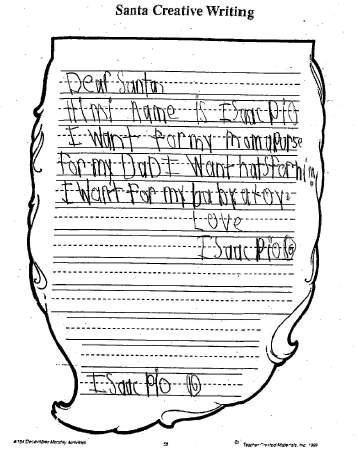 Santa Creative Writing
Dear Santa,
Hi mi Name is ISaac Pio
I Want for my mom a purse
For my Dad I Want hats for him
I Want for my baby a toy
Love
ISaac Pio
ISaac Pio
#184 December Monthly Activities
58
© Teacher Created Materials, Inc. 1989